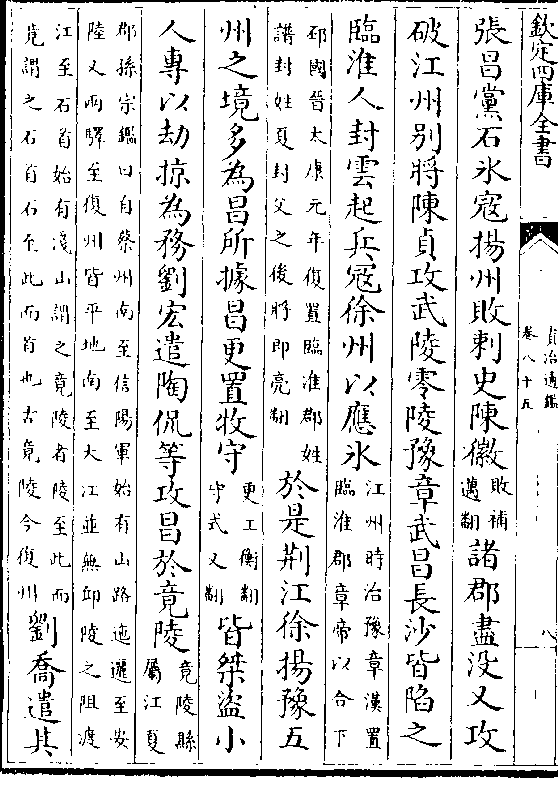 欽定四庫全書
資治通鑑
卷八十五
八
張昌黨石氷寇揚州敗刺史陳徽敗補邁翻諸郡盡没又攻
破江州别將陳貞攻武陵零陵豫章武昌長沙皆陷之
臨淮人封雲起兵寇徐州以應氷江州時治豫章漢置臨淮郡章帝以合下
邳國晉太康元年復置臨淮郡姓譜封姓夏封父之後將即亮翻於是荆江徐揚豫五
州之境多為昌所據昌更置牧守更工衡翻守式又翻皆桀盗小
人專以劫掠為務劉宏遣陶侃等攻昌於竟陵竟陵縣屬江夏
郡孫宗鑑曰自蔡州南至信陽軍始有山路迤邐至安陸又兩驛至復州皆平地南至大江並無邱陵之阻渡
江至石首始有淺山謂之竟陵者陵至此而竟謂之石首石至此而首也古竟陵今復州劉喬遣其